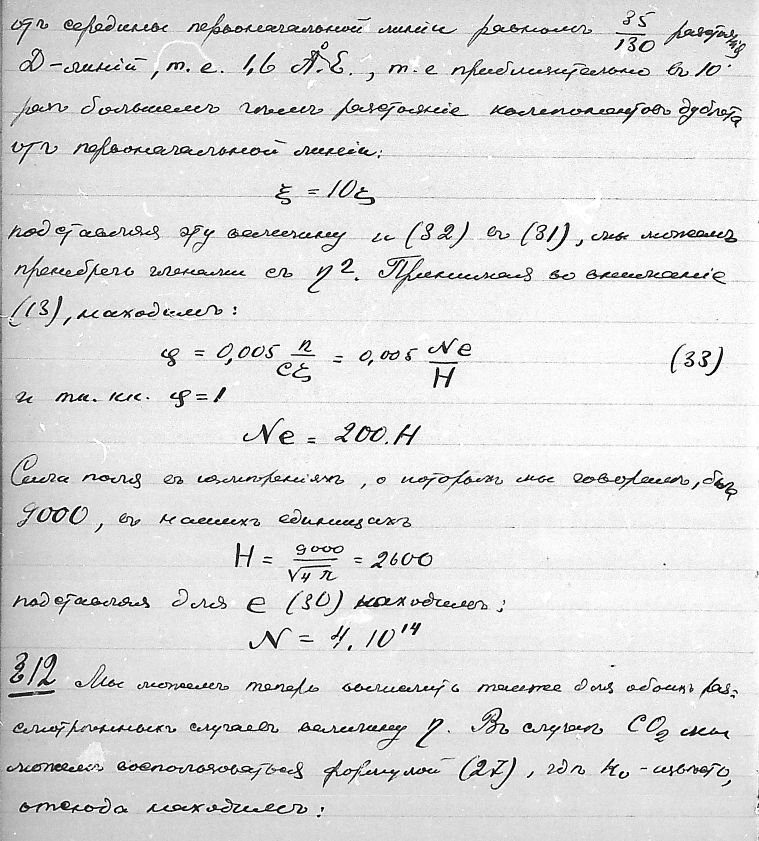 отъ середины первоначальной линiи равномъ 35/130 разстоянiя
D-линiй, т. е. 1,6 Å.E., т. е приблизительно въ 10
разъ большемъ чѣмъ разстоянiе компонентовъ дублета
отъ первоначальной линiи:
ξ = 10ξ
подставляя эту величину и (32) въ (31), мы можемъ
пренебречь членами съ η². Принимая во вниманiе
(13), находимъ:
φ = 0,005 n/cξ = 0,005 Ne/H (33)
и т. к. φ=1
Ne = 200.H
Сила поля въ измѣренiяхъ, о которыхъ мы говоримъ, была
9000, въ нашихъ единицахъ
H = 9000/√4π = 2600
подставляя для e (30) находимъ:
N = 4.10¹⁴
§12 Мы можемъ теперь вычислить также для обоихъ раз=
смотрѣнныхъ случаевъ величину η. Въ случаѣ CO₂ мы
можемъ воспользоваться формулой (27), гдѣ
отсюда находимъ: